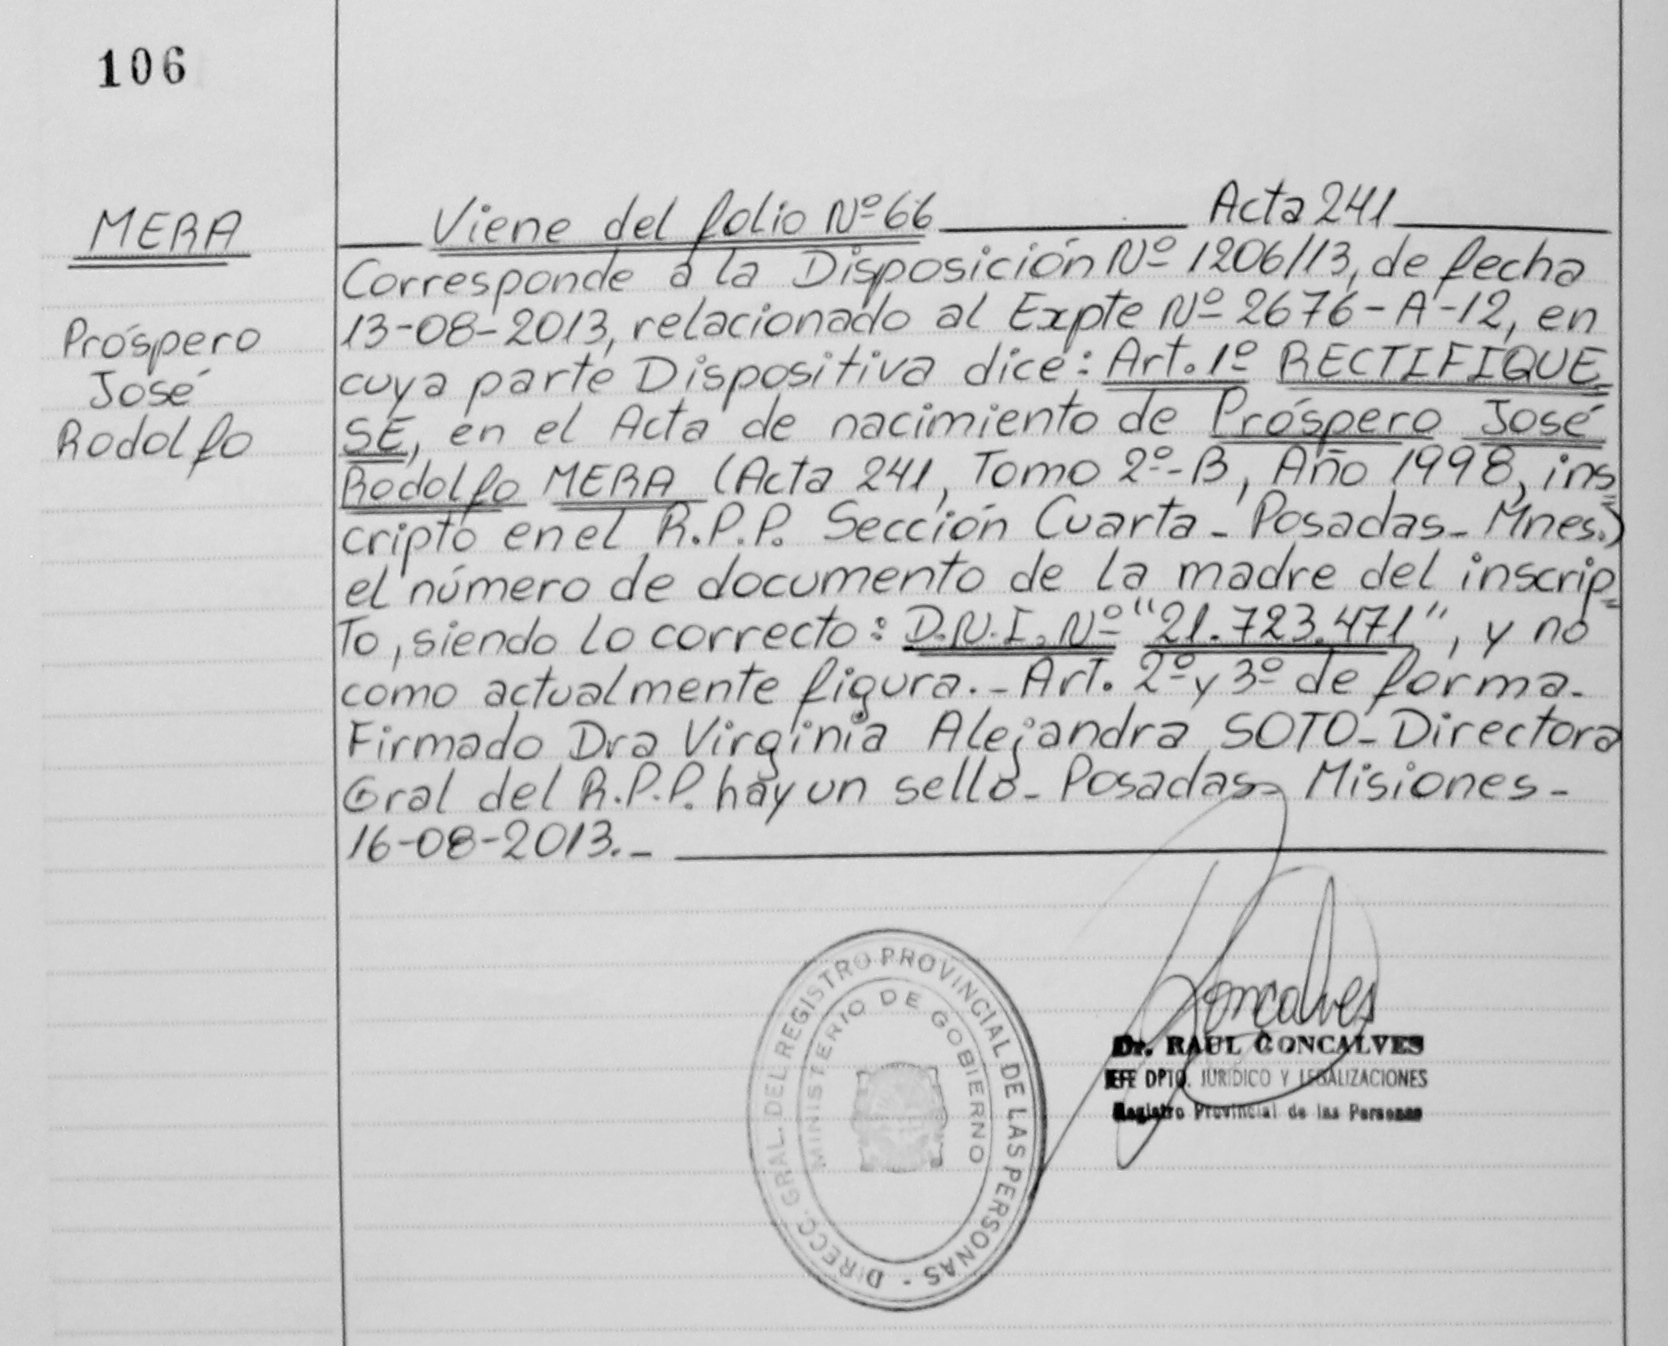 106
MERA
Próspero
José
Rodolfo
Viene del folio Nº 66 Acta 241
Corresponde a la Disposición Nº 1206/13, de fecha
13-08-2013, relacionado al Expte Nº 2676-A-12, en
cuya parte Dispositiva dice: Art. 1º RECTIFIQUE
SE, en el Acta de nacimiento de Próspero José
Rodolfo MERA (Acta 241, Tomo 2º-B, Año 1998, ins
cripto en el R.P.P. Sección Cuarta - Posadas - Mnes.)
el número de documento de la madre del inscrip=
to, siendo lo correcto: D.N.I. Nº "21.723.471", y no
como actualmente figura.- Art. 2º y 3º de forma-
Firmado Dra Virginia Alejandra SOTO - Directora
Gral del R.P.P. hay un sello - Posadas - Misiones -
16-08-2013.-
DIRECC. GRAL. DEL REGISTRO PROVINCIAL DE LAS PERSONAS -
MINISTERIO DE GOBIERNO
Goncalves
Dr. RAUL GONCALVES
JEFE DPTO. JURIDICO Y LEGALIZACIONES
Registro Provincial de las Personas